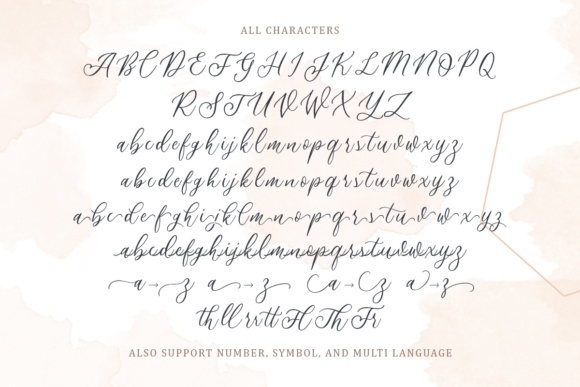 ALL CHARACTERS
ABCDEFGHIJKLMNOPQ
RSTUVWXYZ
abcdefghijklmnopqrstuvwxyz
abcdefghijklmnopqrstuvwxyz
abcdefghijklmnopqrstuvwxyz
abcdefghijklmnopqrstuvwxyz
a→z a→z a→z a→z
th ll rr tt H Th Fr
ALSO SUPPORT NUMBER, SYMBOL, AND MULTI LANGUAGE